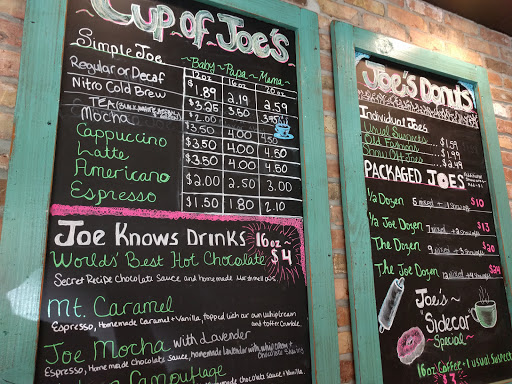 Cup of Joe's
~Baby~ Papa~ Mama~
Simple Joe 12oz 16oz 20oz
Regular or Decaf $1.89 2.19 2.59
Nitro Cold Brew $3.25 3.50 3.95
TEA $2.00
Mocha $3.50 4.00 4.50
Cappuccino $3.50 4.00 4.50
Latte $3.50 4.00 4.50
Americano $2.00 2.50 3.00
Espresso $1.50 1.80 2.10
Joe Knows Drinks 16oz~
Worlds' Best Hot Chocolate $4
Secret Recipe Chocolate Sauce and homemade
Mt. Caramel
Espresso, Homemade Caramel + Vanilla, topped with our own whipcream
and toffee Crumble.
Joe Mocha with Lavender
Espresso, Homemade Chocolate Sauce, homemade Lavender with whip cream +
Chocolate Shaving
Camouflage
Homemade Chocolate Sauce + Vanilla.
Joe's Donuts
Individual Joes
Usual Suspects ... $1.59
Old Fashions ... $1.99
Snow Off Joes $2.49
PACKAGED JOES
1/2 Dozen $10
1/2 Joe Dozen $13
The Dozen $20
The Joe Dozen $24
Joe's~
'Sidecar'
~Special~
16oz Coffee + 1 usual Suspect
$